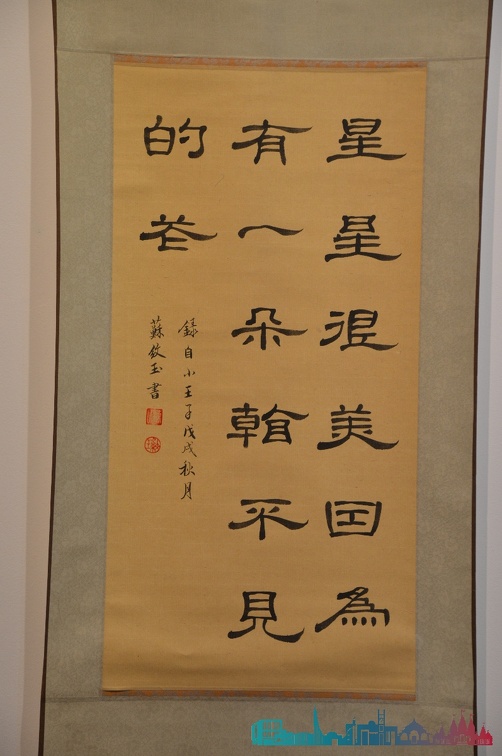 星星很美因為
有一朵看不見
的花
錄自小王子戊戌秋月
蘇欽玉書